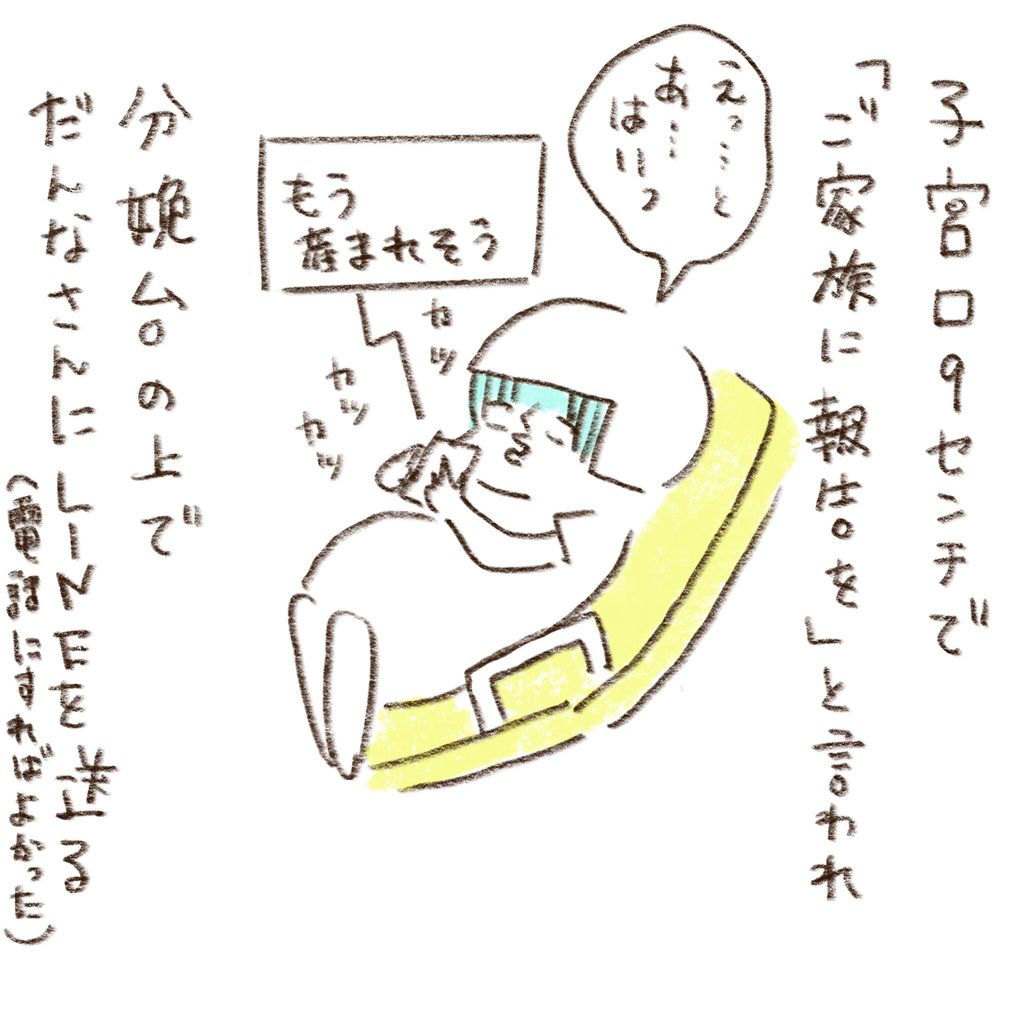 子宮口9センチで
「ご家族に報告を」と言われ
えっ…と
あ…
はいっ
もう
産まれそう
カッ
カッ
カッ
分娩台の上で
だんなさんにLINEを送る
(電話にすればよかった)